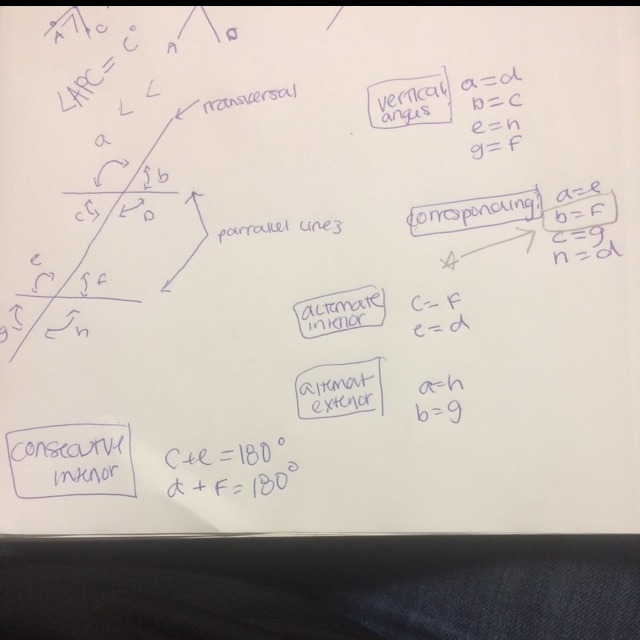 A
C
A
D
∠APC = C°
∠ ∠
transversal
a
b
c
D
parralel lines
e
f
g
h
vertical
angus
a = d
b = c
e = h
g = F
corrosponding
a = e
b = F
c = g
h = d
alternate
interior
c = F
e = d
alternat
exterior
a = h
b = g
consecutive
interior
c + e = 180°
d + F = 180°